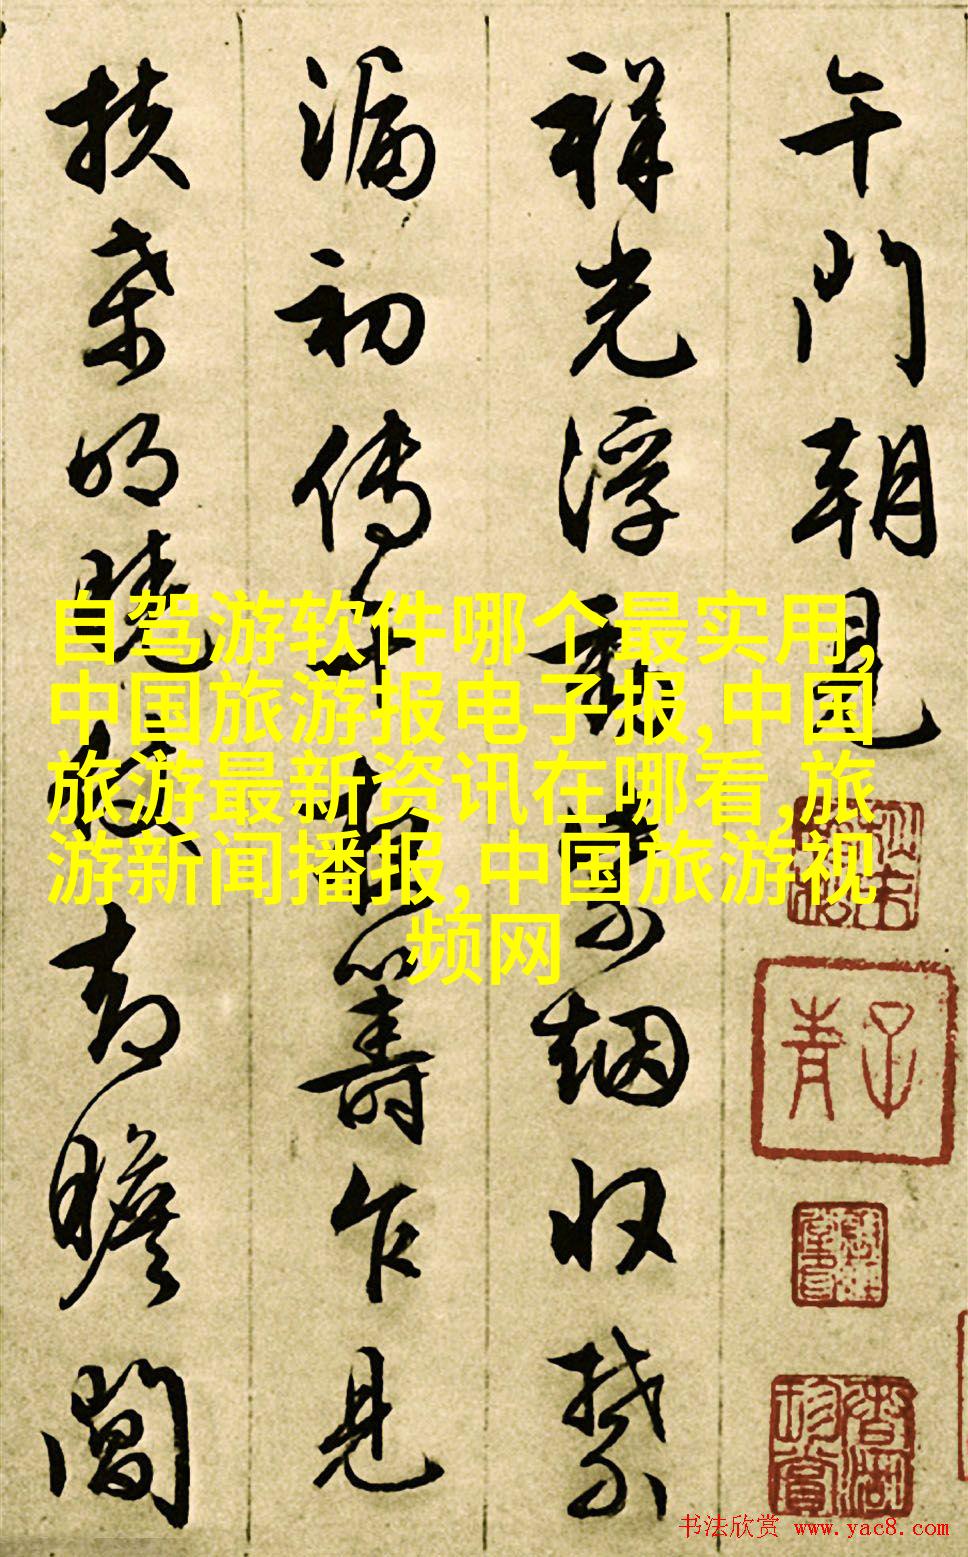 午門朝見
祥光浮動紫烟收禁
漏初传籌乍見
扶桑明曉瞻閶
自驾游软件哪个最实用,
中国旅游报电子报,中国
旅游最新资讯在哪看,旅
游新闻播报,中国旅游视
频网
子青
书法欣赏 www.yac8.com